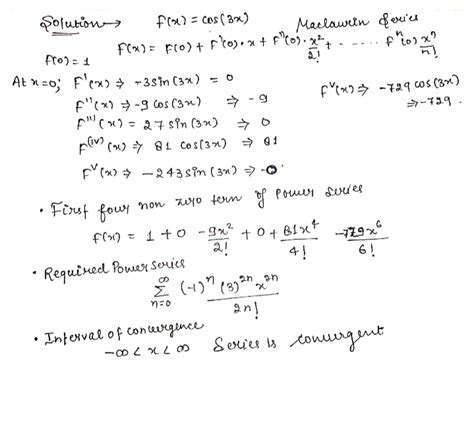 Solution → f(x) = cos(3x) Maclauren Series
f(x) = f(0) + f'(0)·x + f''(0)·x²/2! + - - - - · fⁿ(0) xⁿ/n!
f(0) = 1
At x=0; f'(x) ⇒ -3sin(3x) = 0
f''(x) ⇒ -9 cos(3x) ⇒ -9
f'''(x) = 27 sin(3x) ⇒ 0
f(iv)(x) ⇒ 81 cos(3x) ⇒ 81
fV(x) ⇒ -243 sin(3x) ⇒ -0
fV(x) ⇒ -729 cos(3x)
⇒ -729.
• First four non zero term of Power series
f(x) = 1 + 0 - 9x²/2! + 0 + 81x⁴/4! - 729x⁶/6!
• Required Power series
∞ Σ n=0 (-1)ⁿ (3)²ⁿ x²ⁿ / 2n!
• Interval of convergence
-∞ < x < ∞ Series is convergent